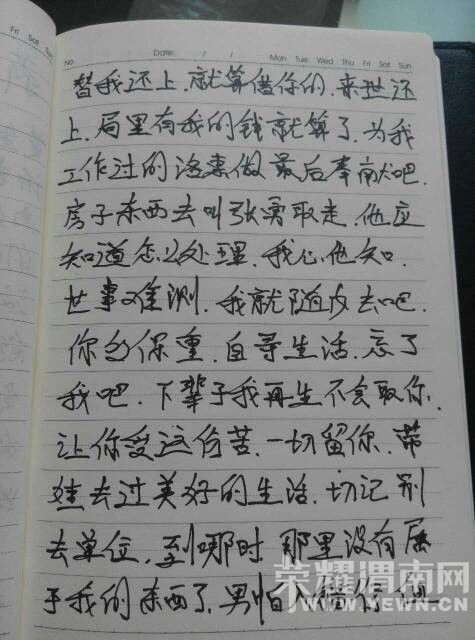 Fri Sat Sun
No. Date: / / Mon Tue Wed Thu Fri Sat Sun
替我还上.就算借你的.来世还
上.局里有我的钱就算了.为我
工作过的洛惠做最后奉献吧.
房子东西去叫张勇取走.他应
知道怎么处理.我心他知.
世事难测.我就随风去吧.
你多保重.自寻生活.忘了
我吧.下辈子我再生不会取你.
让你受这份苦.一切留你.带
娃去过美好的生活.切记别
去单位.到哪时那里没有属
于我的东西了.男怕入
荣耀渭南网
WWW.YEWN.CN